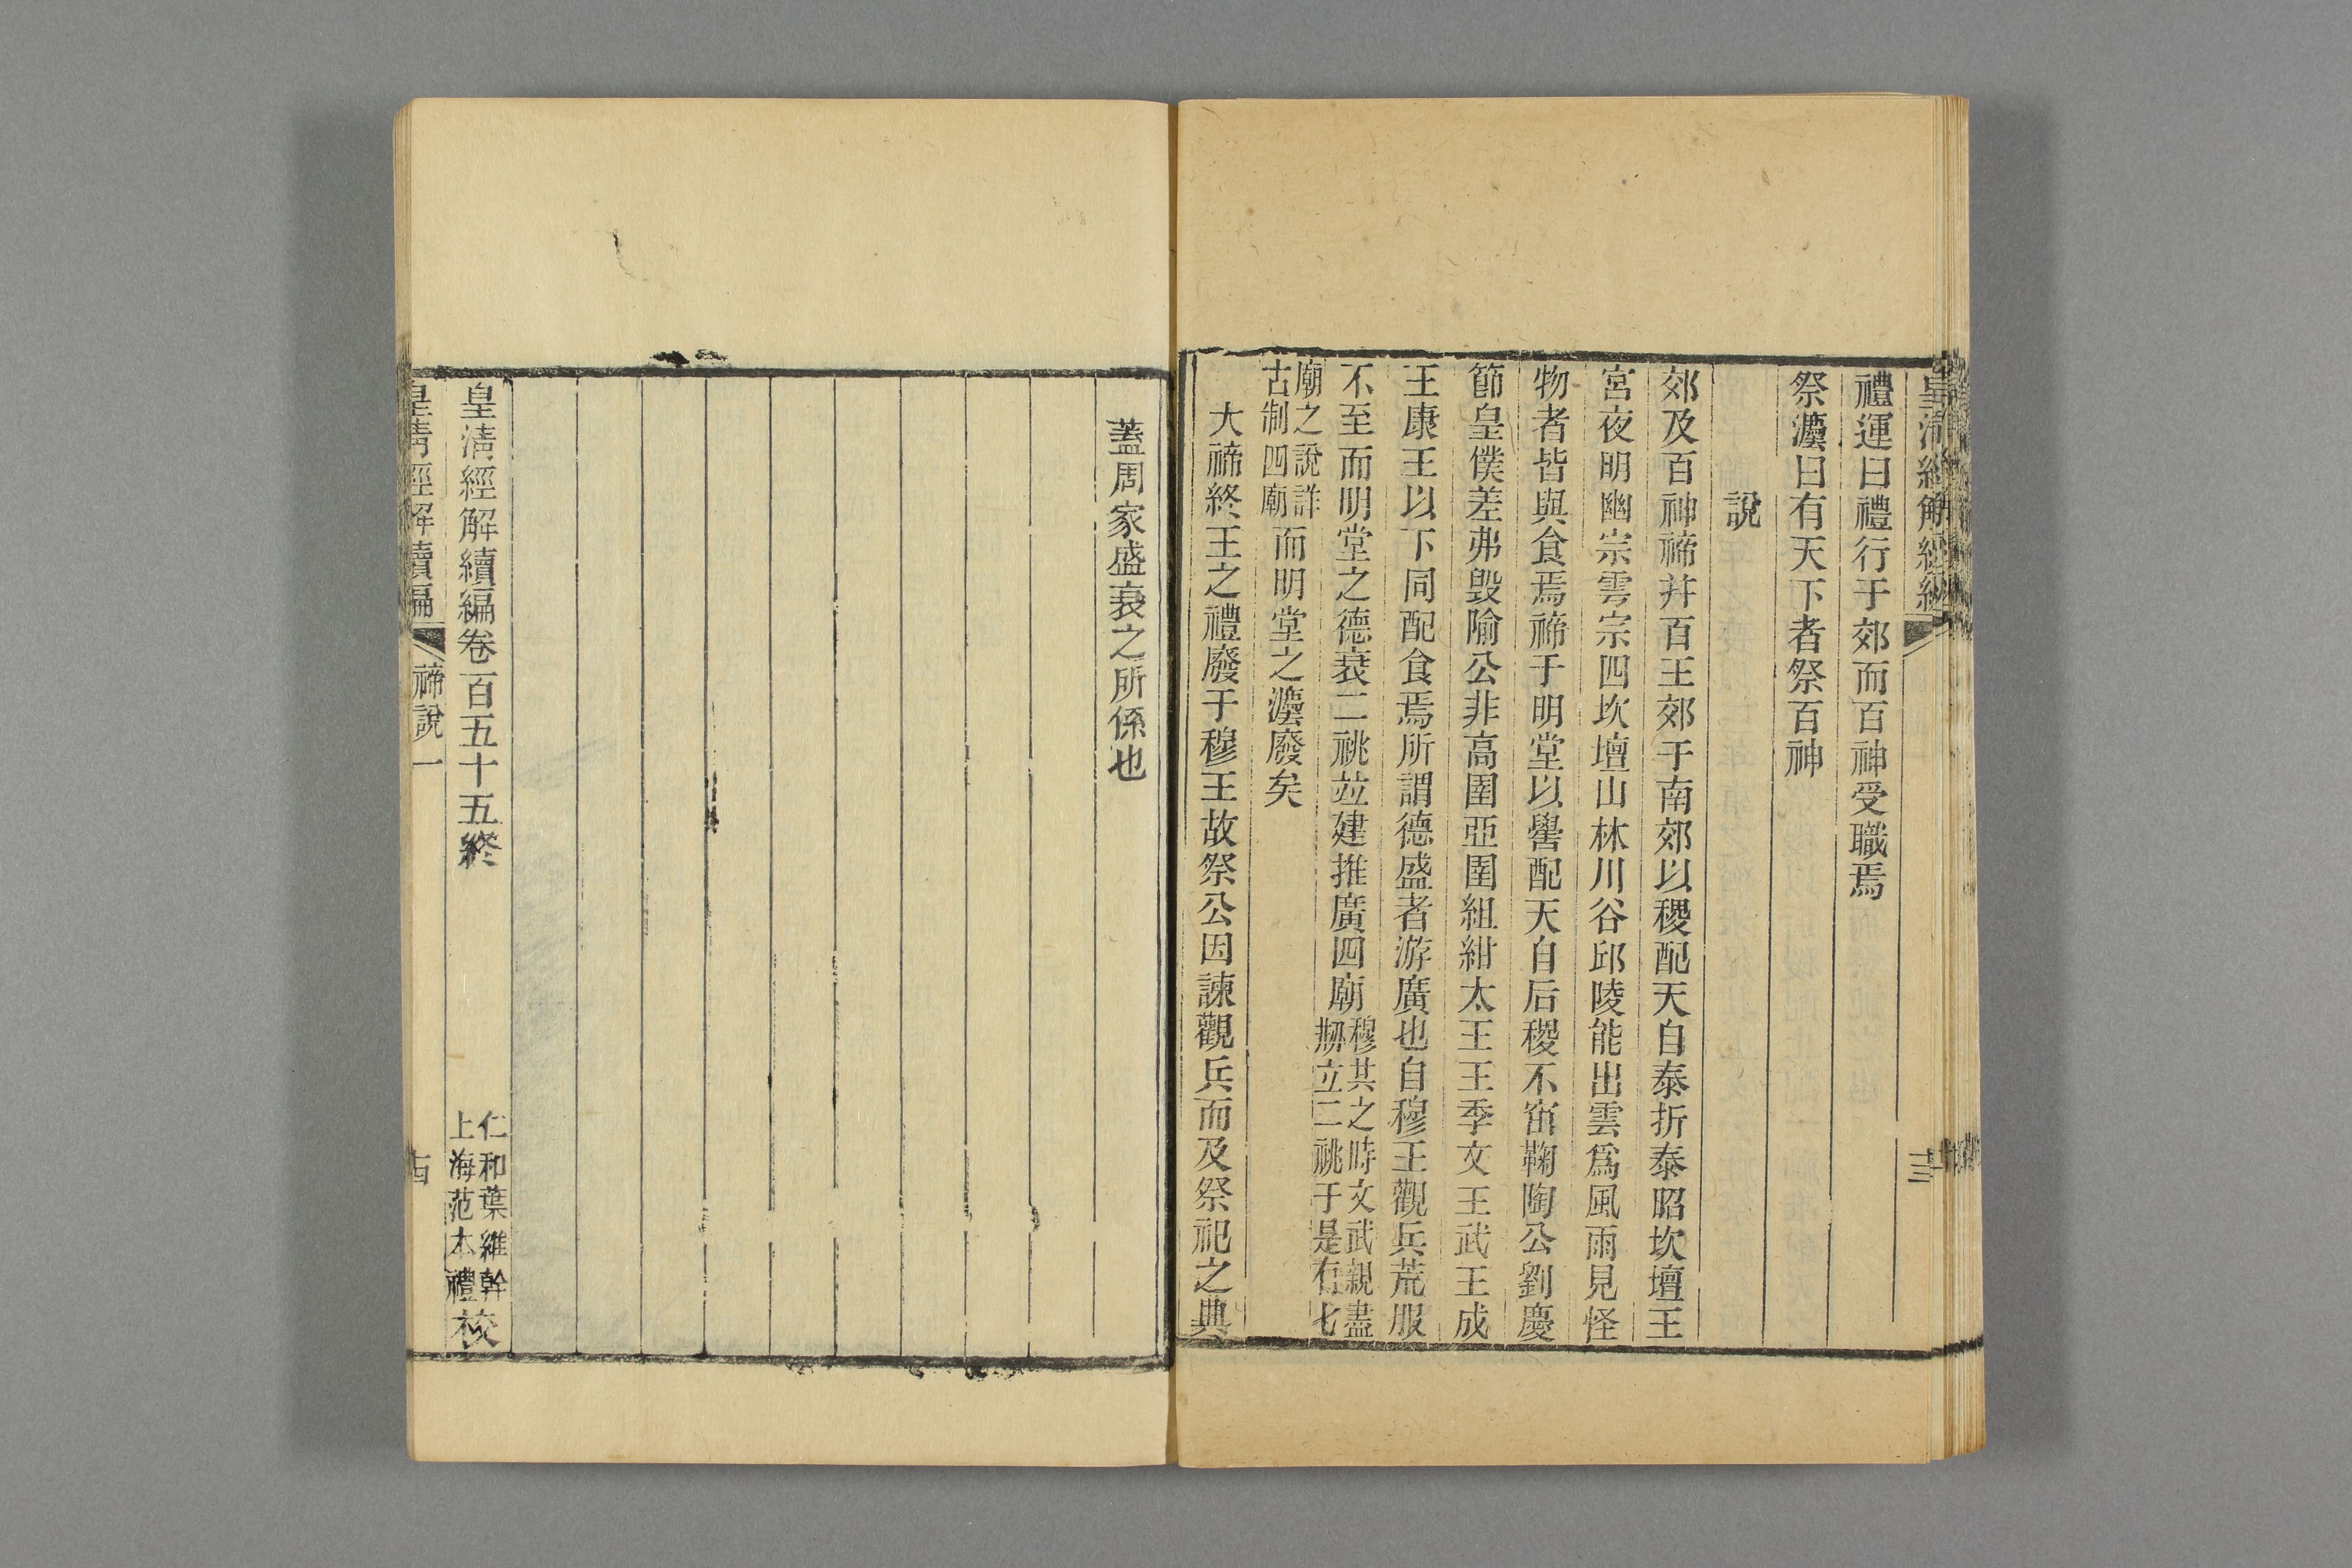 禮運曰禮行于郊而百神受職焉
祭灋曰有天下者祭百神
說
郊及百神禘幷百王郊于南郊以稷配天自泰折泰昭坎壇王
宮夜明幽宗雩宗四坎壇山林川谷邱陵能出雲爲風雨見怪
物者皆與食焉禘于明堂以嚳配天自后稷不窋鞠陶公劉慶
節皇僕差弗毀隃公非高圉亞圉組紺太王王季文王武王成
王康王以下同配食焉所謂德盛者游廣也自穆王觀兵荒服
不至而明堂之德衰二祧竝建推廣四廟穆共之時文武親盡
剏立二祧于是有七
廟之說詳
古制四廟而明堂之灋廢矣
大禘終王之禮廢于穆王故祭公因諫觀兵而及祭祀之典
蓋周家盛衰之所係也
皇清經解續編卷一百五十五終
仁和葉維幹
上海范本禮校
皇清經解續編
禘說一